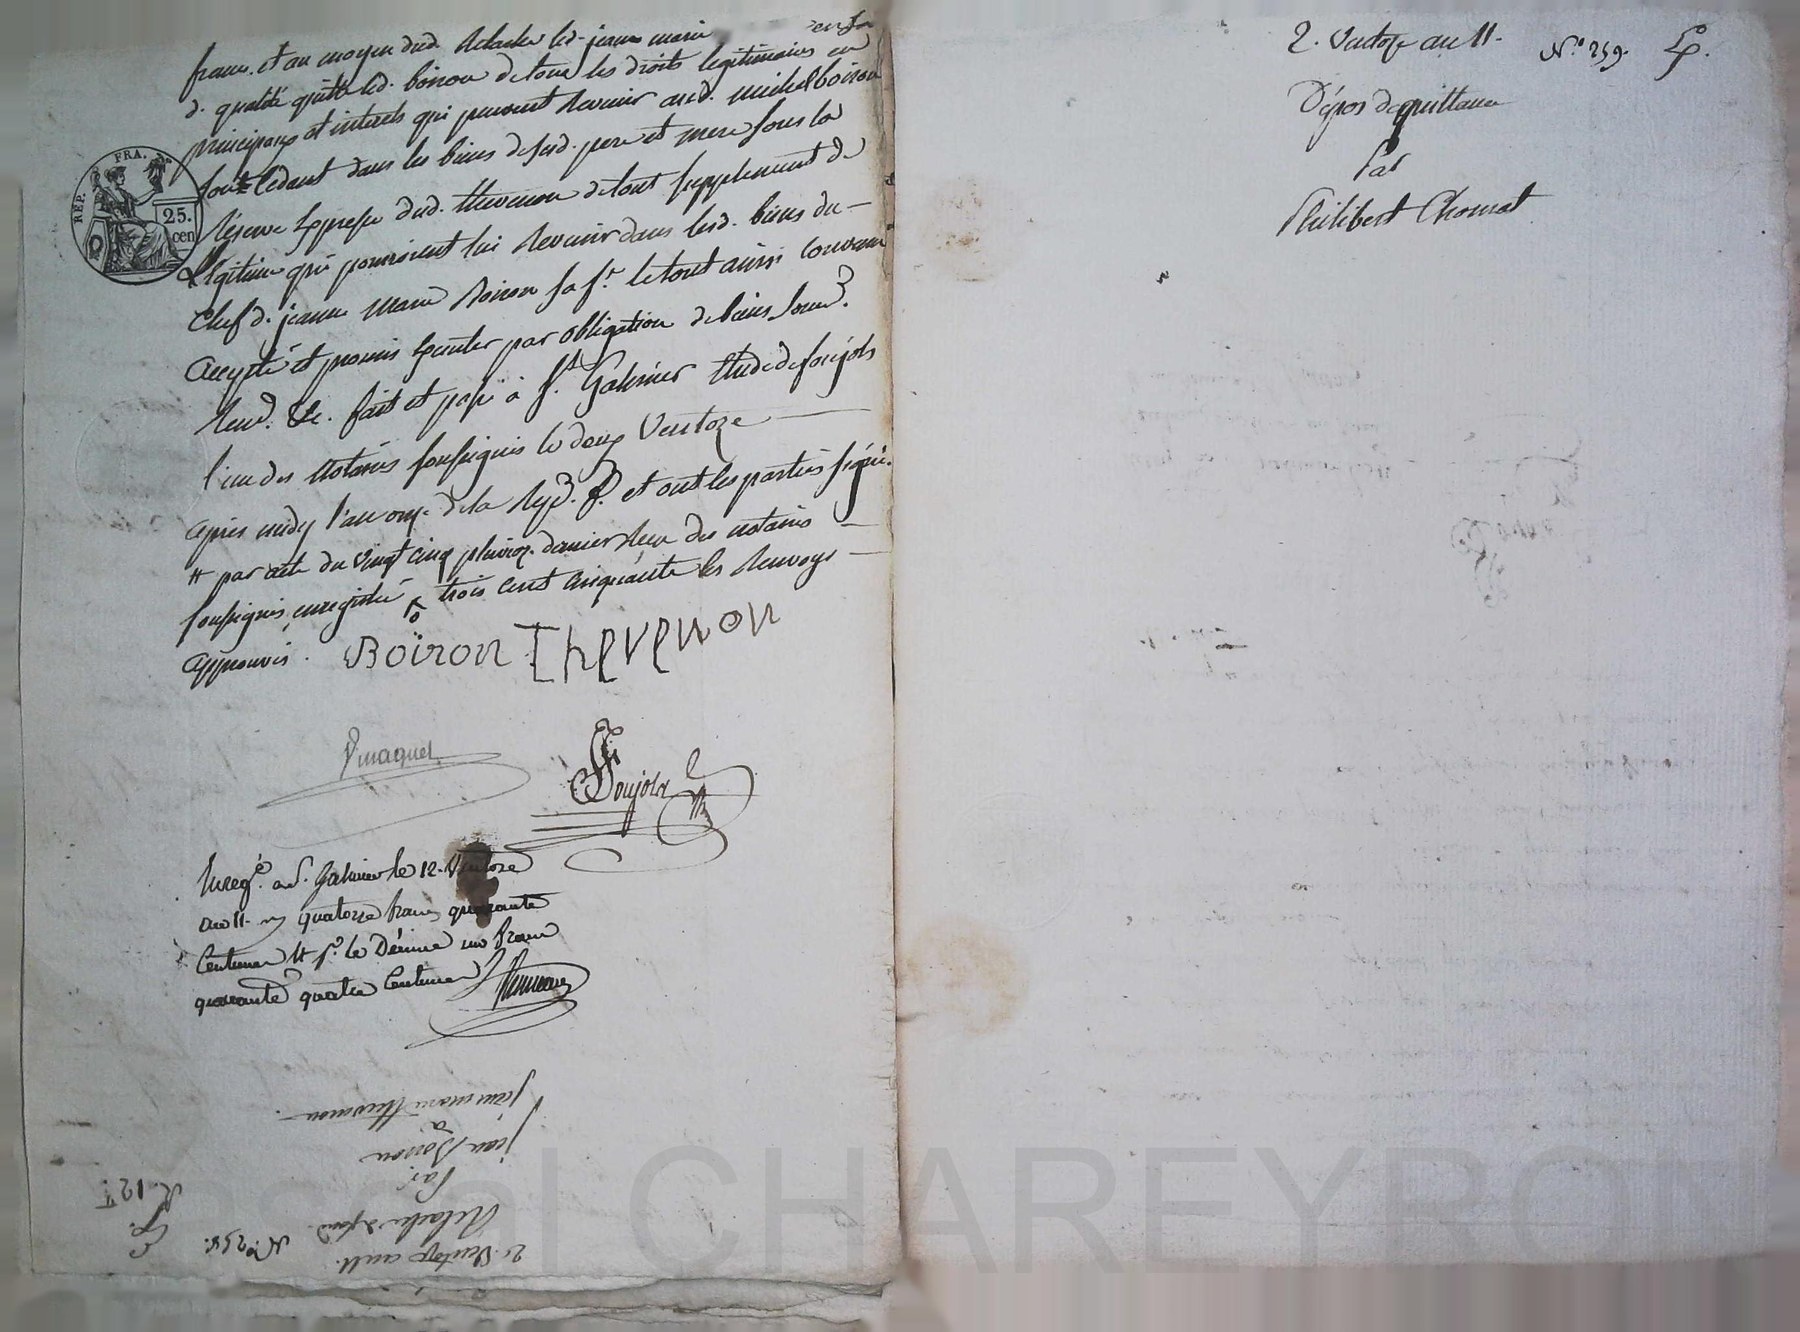 francs. et au moyen dud. Relacher led. jean marie en sa
d. qualité quitte led. boiron de tous les droits legitimaires en
principaux et interets qui peuvent Revenir aud. michel boiron
son cedant dans les biens de sesd. pere et mere sous la
Réserve Expresse dud. thevenon de tout supplement de
légitime qui pourroient lui Revenir dans lesd. biens du
Chef d. jeanne marie Boiron sa fe. le tout ainsi convenu
accepté et promis Exécuter par obligation de biens soumd.
Rend. &c. fait et passé à St. Galmier Etude de soujols
l'un des Notaires soussignés le deux Ventoze
après midy l'an onze de la Rep. f. et ont les parties signé.
# par acte du vingt cinq pluvioz. dernier Reçu des notaires
soussignés, enregistré # trois cent cinquante les Renvoys
approuvés.
Boïron Thevenon
Pmaquet
Soujols
Enregé. a S. Galmier le 12. Ventose
an 11. Reçu quatorze francs quarante
Centimes et pr. le Décime un Franc
quarante quatre Centimes
2. Ventoze an 11.
N.o 258.
Relacher de fond.
Par
jean Boiron
à
jean marie thevenon.
R. 12 #
E.
2. Ventoze an 11.
N.o 259.
E.
Dépos de quittance
Par
Philibert Chomat
RÉP. FRA.
25.
cen
Pascal CHAREYRON